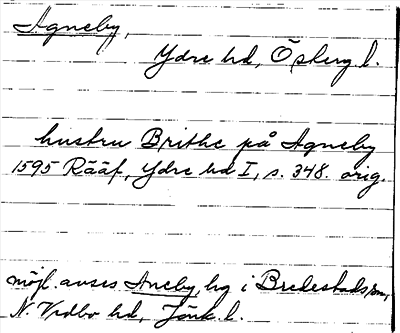 Agneby,
Ydre hd, Östergl.
hustru Brithe på Agneby
1595 Rääf, Ydre hd I, s. 348. orig.
möjl. avses Aneby, by i Bredestads sn,
N. Vedbo hd, Jönk. l.